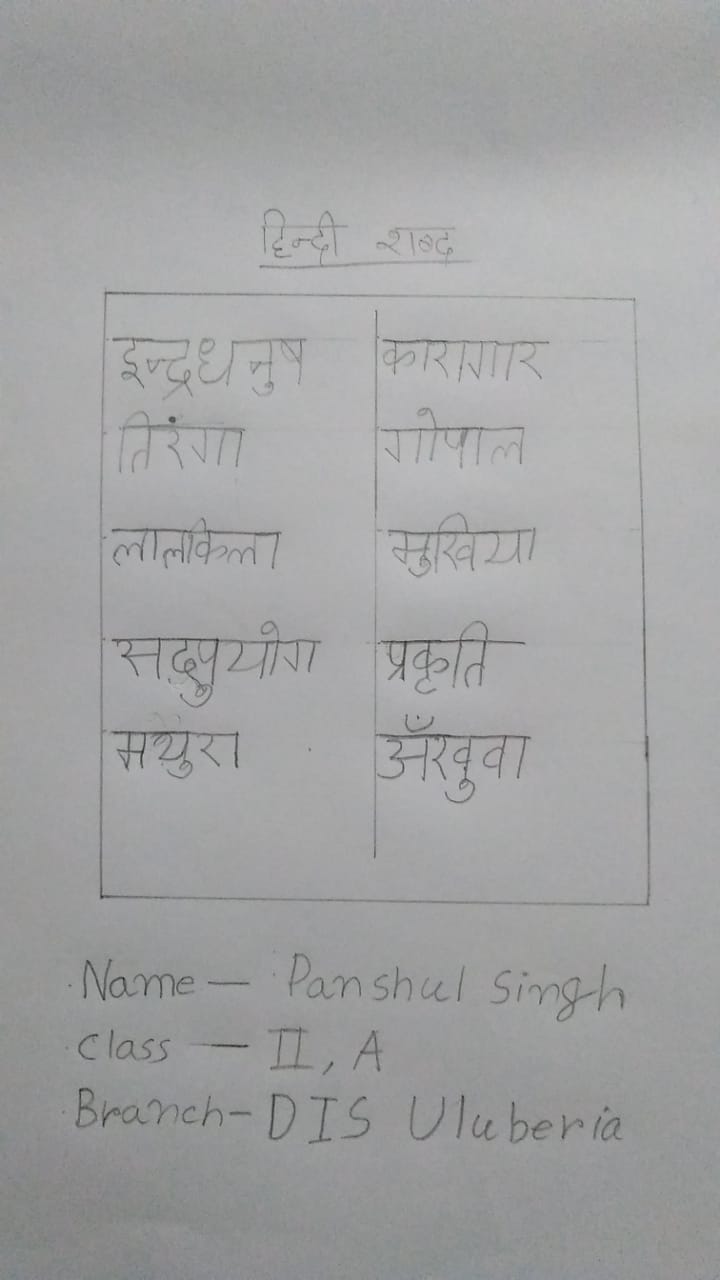 हिन्दी शब्द
इन्द्रधनुष कारागार
तिरंगा गोपाल
लालकिला मुखिया
सद्पुयोग प्रकृति
मथुरा अँखुवा
Name — Panshul Singh
Class — II, A
Branch - DIS Uluberia